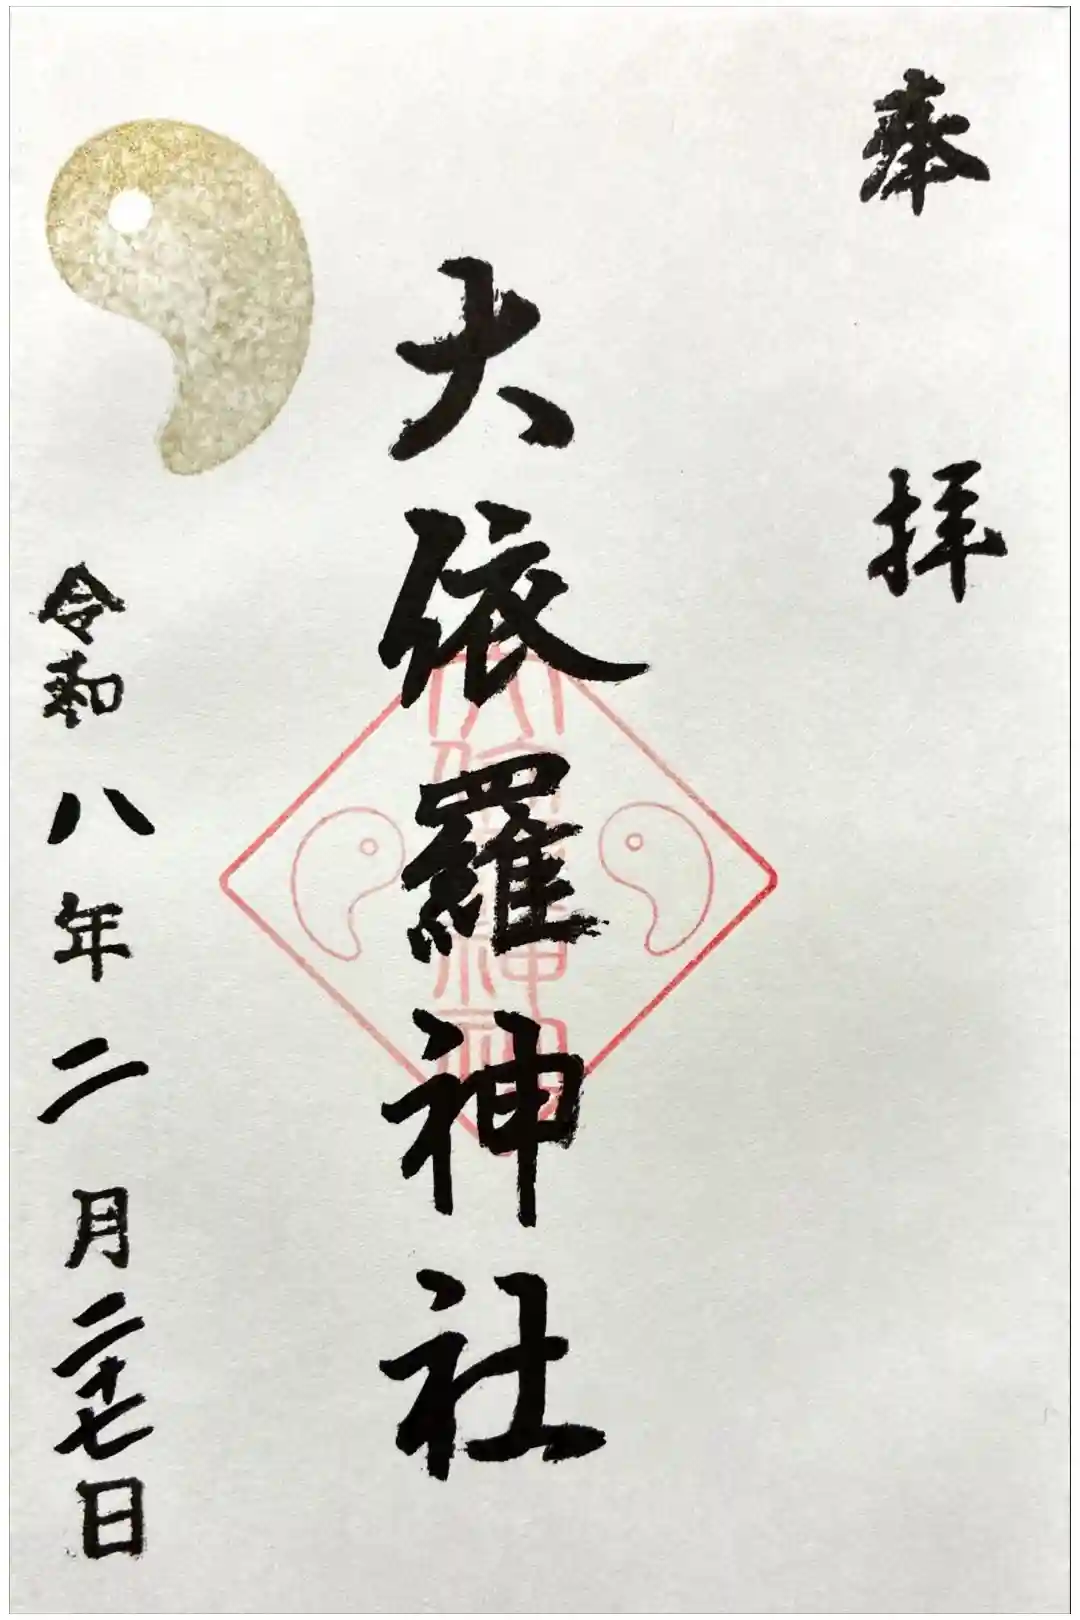 奉拝
大依羅神社
令和八年二月二十七日
大依羅神社